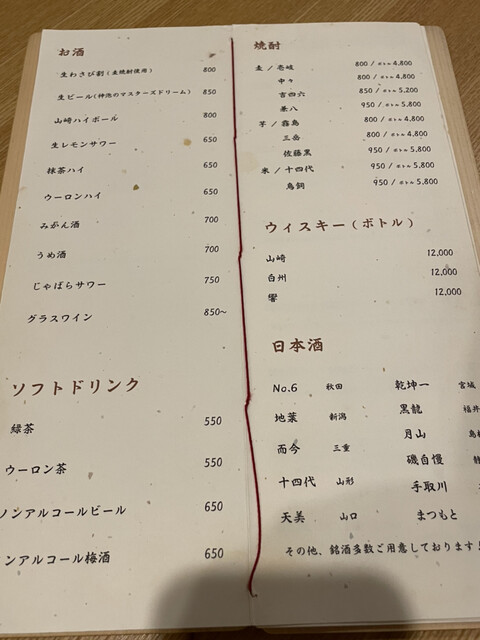 お酒
生わさび割(麦焼酎使用) 800
生ビール(神泡のマスターズドリーム) 850
山崎ハイボール 800
生レモンサワー 650
抹茶ハイ 650
ウーロンハイ 650
みかん酒 700
うめ酒 700
じゃばらサワー 750
グラスワイン 850~
ソフトドリンク
緑茶 550
ウーロン茶 550
ノンアルコールビール 650
ンアルコール梅酒 650
焼酎
麦 / 壱岐 800 / ボトル 4,800
中々 800 / ボトル 4,800
吉四六 850 / ボトル 5,200
兼八 950 / ボトル 5,800
芋 / 霧島 800 / ボトル 4,800
三岳 800 / ボトル 4,800
佐藤黒 950 / ボトル 5,800
米 / 十四代 950 / ボトル 5,800
鳥飼 950 / ボトル 5,800
ウィスキー(ボトル)
山崎 12,000
白州 12,000
響 12,000
日本酒
No.6 秋田 乾坤一 宮城
地葉 新潟 黒龍 福井
而今 三重 月山
十四代 山形 磯自慢
天美 山口 手取川
まつもと
その他、銘酒多数ご用意しております